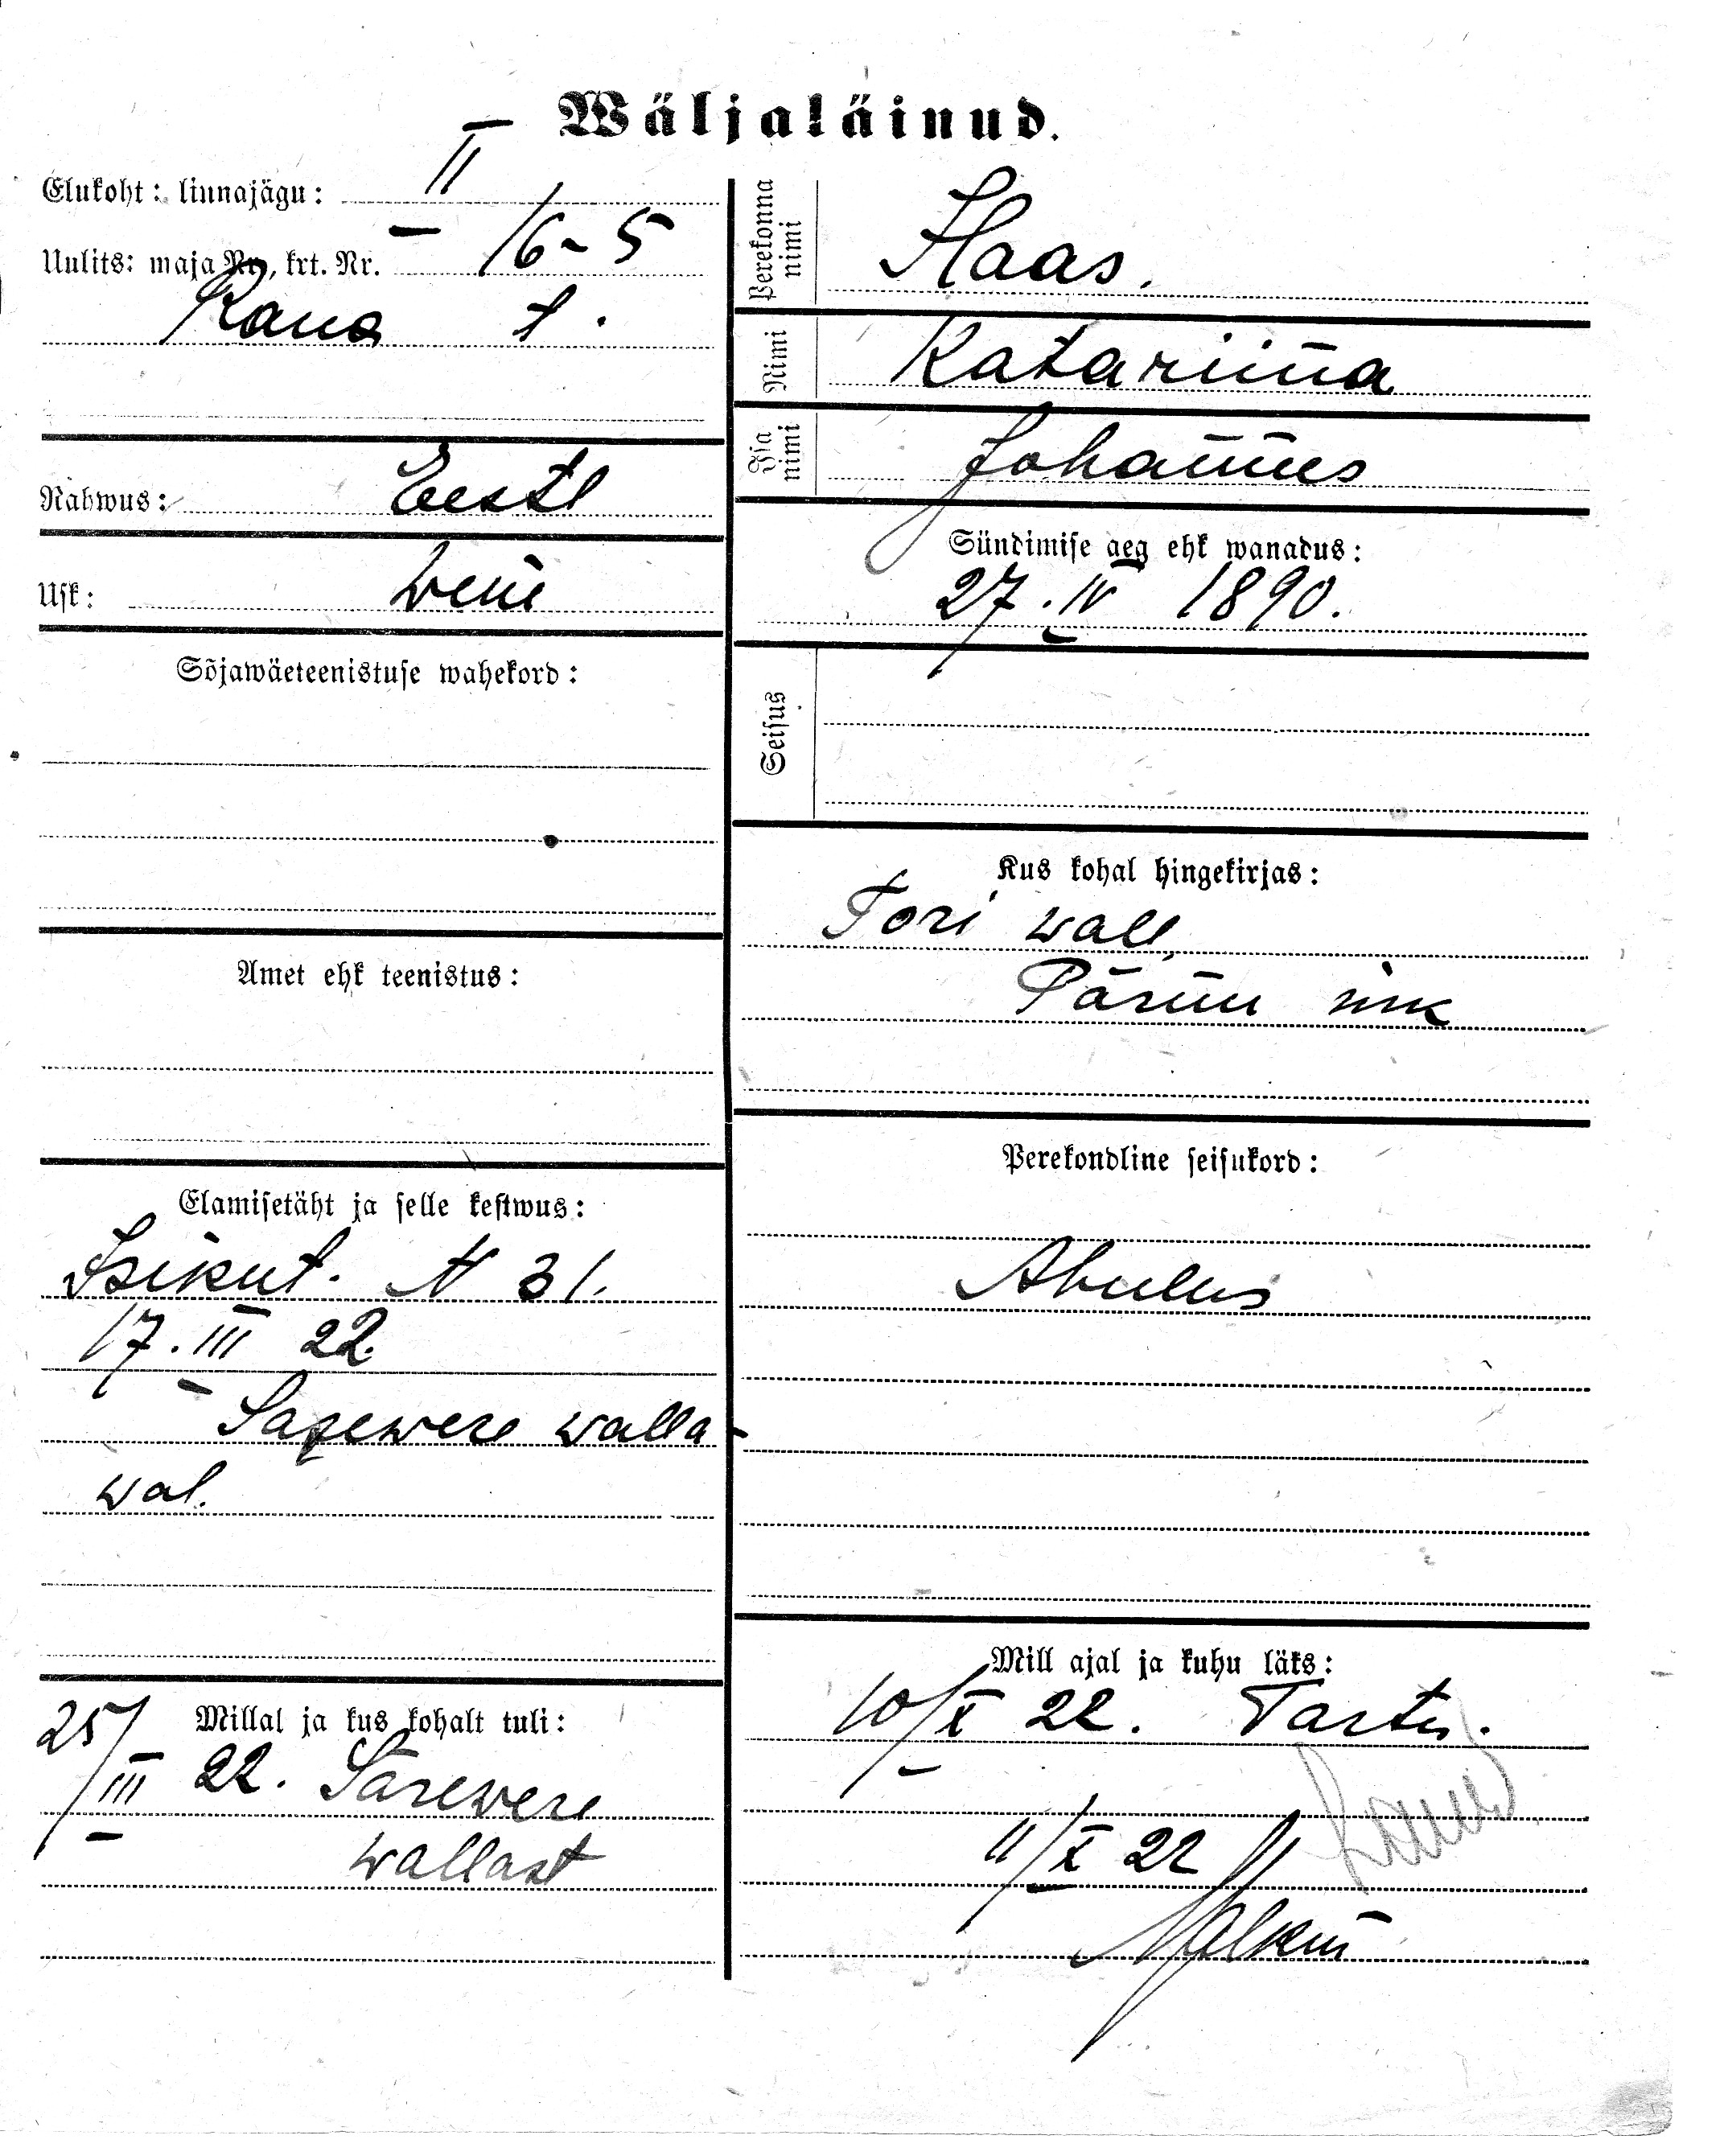 Wäljaläinud.
Elukoht: linnajägu: II
Uulits: maja Nr., krt. Nr. 16-5
Kana t.
Rahwus: Eesti
Usk: Wene
Sõjawäeteenistuse wahekord:
Amet ehk teenistus:
Elamisetäht ja selle kestwus:
Isikut. N 31.
17. III 22.
Sarewere walla
wal.
Millal ja kus kohalt tuli:
25/III 22. Särewere
wallast
Perekonna nimi Haas.
Nimi Katariina
Isa nimi Johannes
Sündimise aeg ehk wanadus:
27. IV 1890.
Seisus
Kus kohal hingekirjas:
Tori wall,
Pärnu mk
Perekondline seisukord:
Abielus
Mill ajal ja kuhu läks:
10/X 22. Tartu.
11/X 22